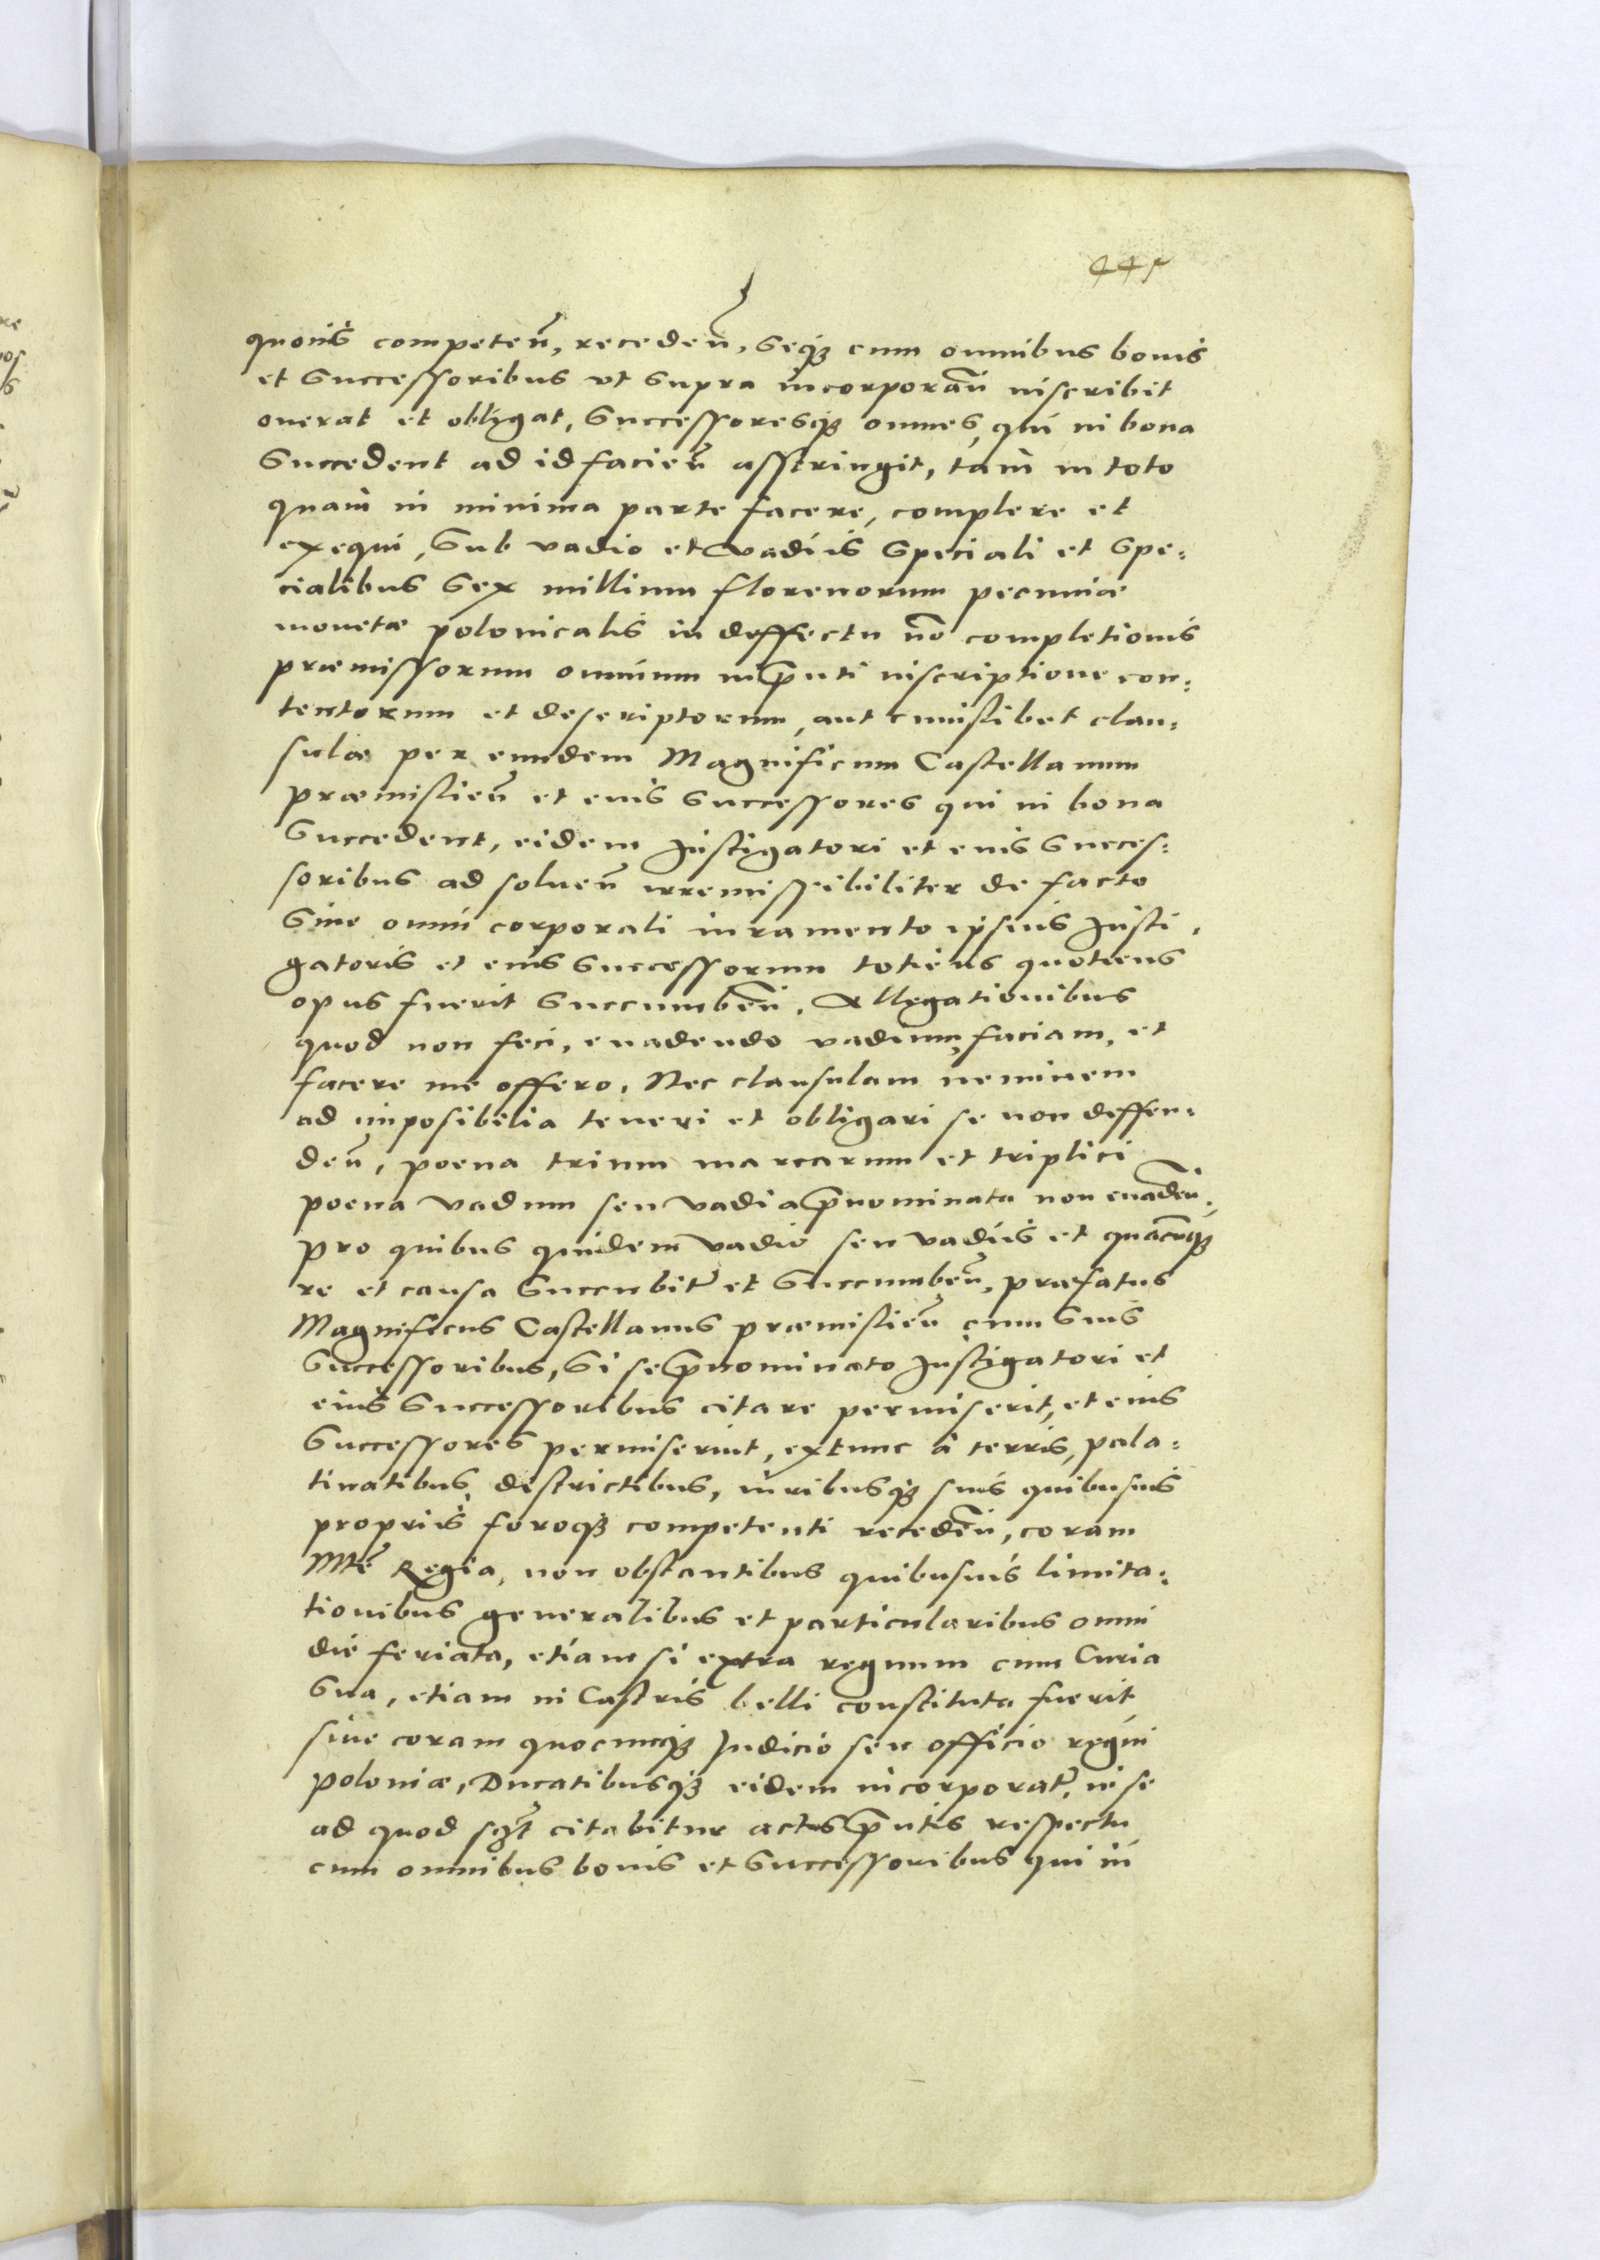 445
quovis competeñ, recedeñ, seqꝫ cum omnibus bonis
et successoribus ut supra incorporañ inscribit
onerat et obligat, successoresqꝫ omnes, qui in bona
succedent ad id facieñ asstringit, tam in toto
quam in minima parte facere, complere et
exequi, sub vadio et vadiis speciali et spe:
cialibus sex millium florenorum pecuniæ
monetæ polonicalis in deffectu no͂ completionis
præmissorum omnium in p̃nti inscriptione con:
tentorum et descriptorum, aut cuiuslibet clau:
sulæ per eundem Magnificum Castellanum
præmislieñ et eius successores qui in bona
succedent, eidem Instigatori et eius succes:
soribus ad solueñ irremissibiliter de facto
sine omni corporali iuramento ipsius Insti:
gatoris et eius successorum totiens quotiens
opus fuerit succumbeñ. Allegationibus
quod non feci, evadendo vadium, faciam, et
facere me offero. Nec clausulam neminem
ad imposibilia teneri et obligari se non deffen:
deñ, poena trium marcarum et triplici
poena vadium seu vadia p̃nominata non evadeñ.
pro quibus quidem vadio seu vadiis et quacunqꝫ
re et causa succubit̃ et succumbeñ, præfatus
Magnificus Castellanus præmislieñ cum suis
successoribus, si se p̃nominato Instigatori et
eius successoribus citare permiserit, et eius
successores permiserint, extunc à terris, pala:
tinatibus, destrictibus, iuribusqꝫ suis quibusuis
propriis foroqꝫ competenti recedeñ, coram
Mte͂ Regia, non obstantibus quibusuis limita:
tionibus generalibus et particularibus omni
die feriata, etiam si extra regnum cum Curia
sua, etiam in Castris belli constituta fuerit,
siue coram quocunqꝫ Judicio seu officio regni
poloniæ, Ducatibusqꝫ eidem incorporat̃, in se
ad quod citabitur actus p̃ntis respectu
cum omnibus bonis et successoribus qui in